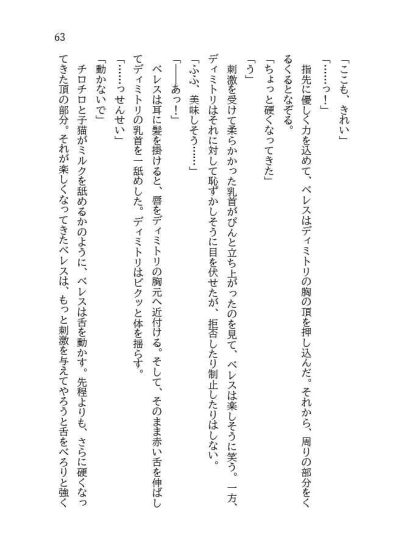 63
「ここも、きれい」
「……っ！」
　指先に優しく力を込めて、ベレスはディミトリの胸の頂を押し込んだ。それから、周りの部分をく
るくるとなぞる。
「ちょっと硬くなってきた」
「う」
　刺激を受けて柔らかかった乳首がぴんと立ち上がったのを見て、ベレスは楽しそうに笑う。一方、
ディミトリはそれに対して恥ずかしそうに目を伏せたが、拒否したり制止したりはしない。
「ふふ、美味しそう……」
「――あっ！」
　ベレスは耳に髪を掛けると、唇をディミトリの胸元へ近付ける。そして、そのまま赤い舌を伸ばし
てディミトリの乳首を一舐めした。ディミトリはビクッと体を揺らす。
「……っせんせい」
「動かないで」
　チロチロと子猫がミルクを舐めるかのように、ベレスは舌を動かす。先程よりも、さらに硬くなっ
てきた頂の部分。それが楽しくなってきたベレスは、もっと刺激を与えてやろうと舌をべろりと強く